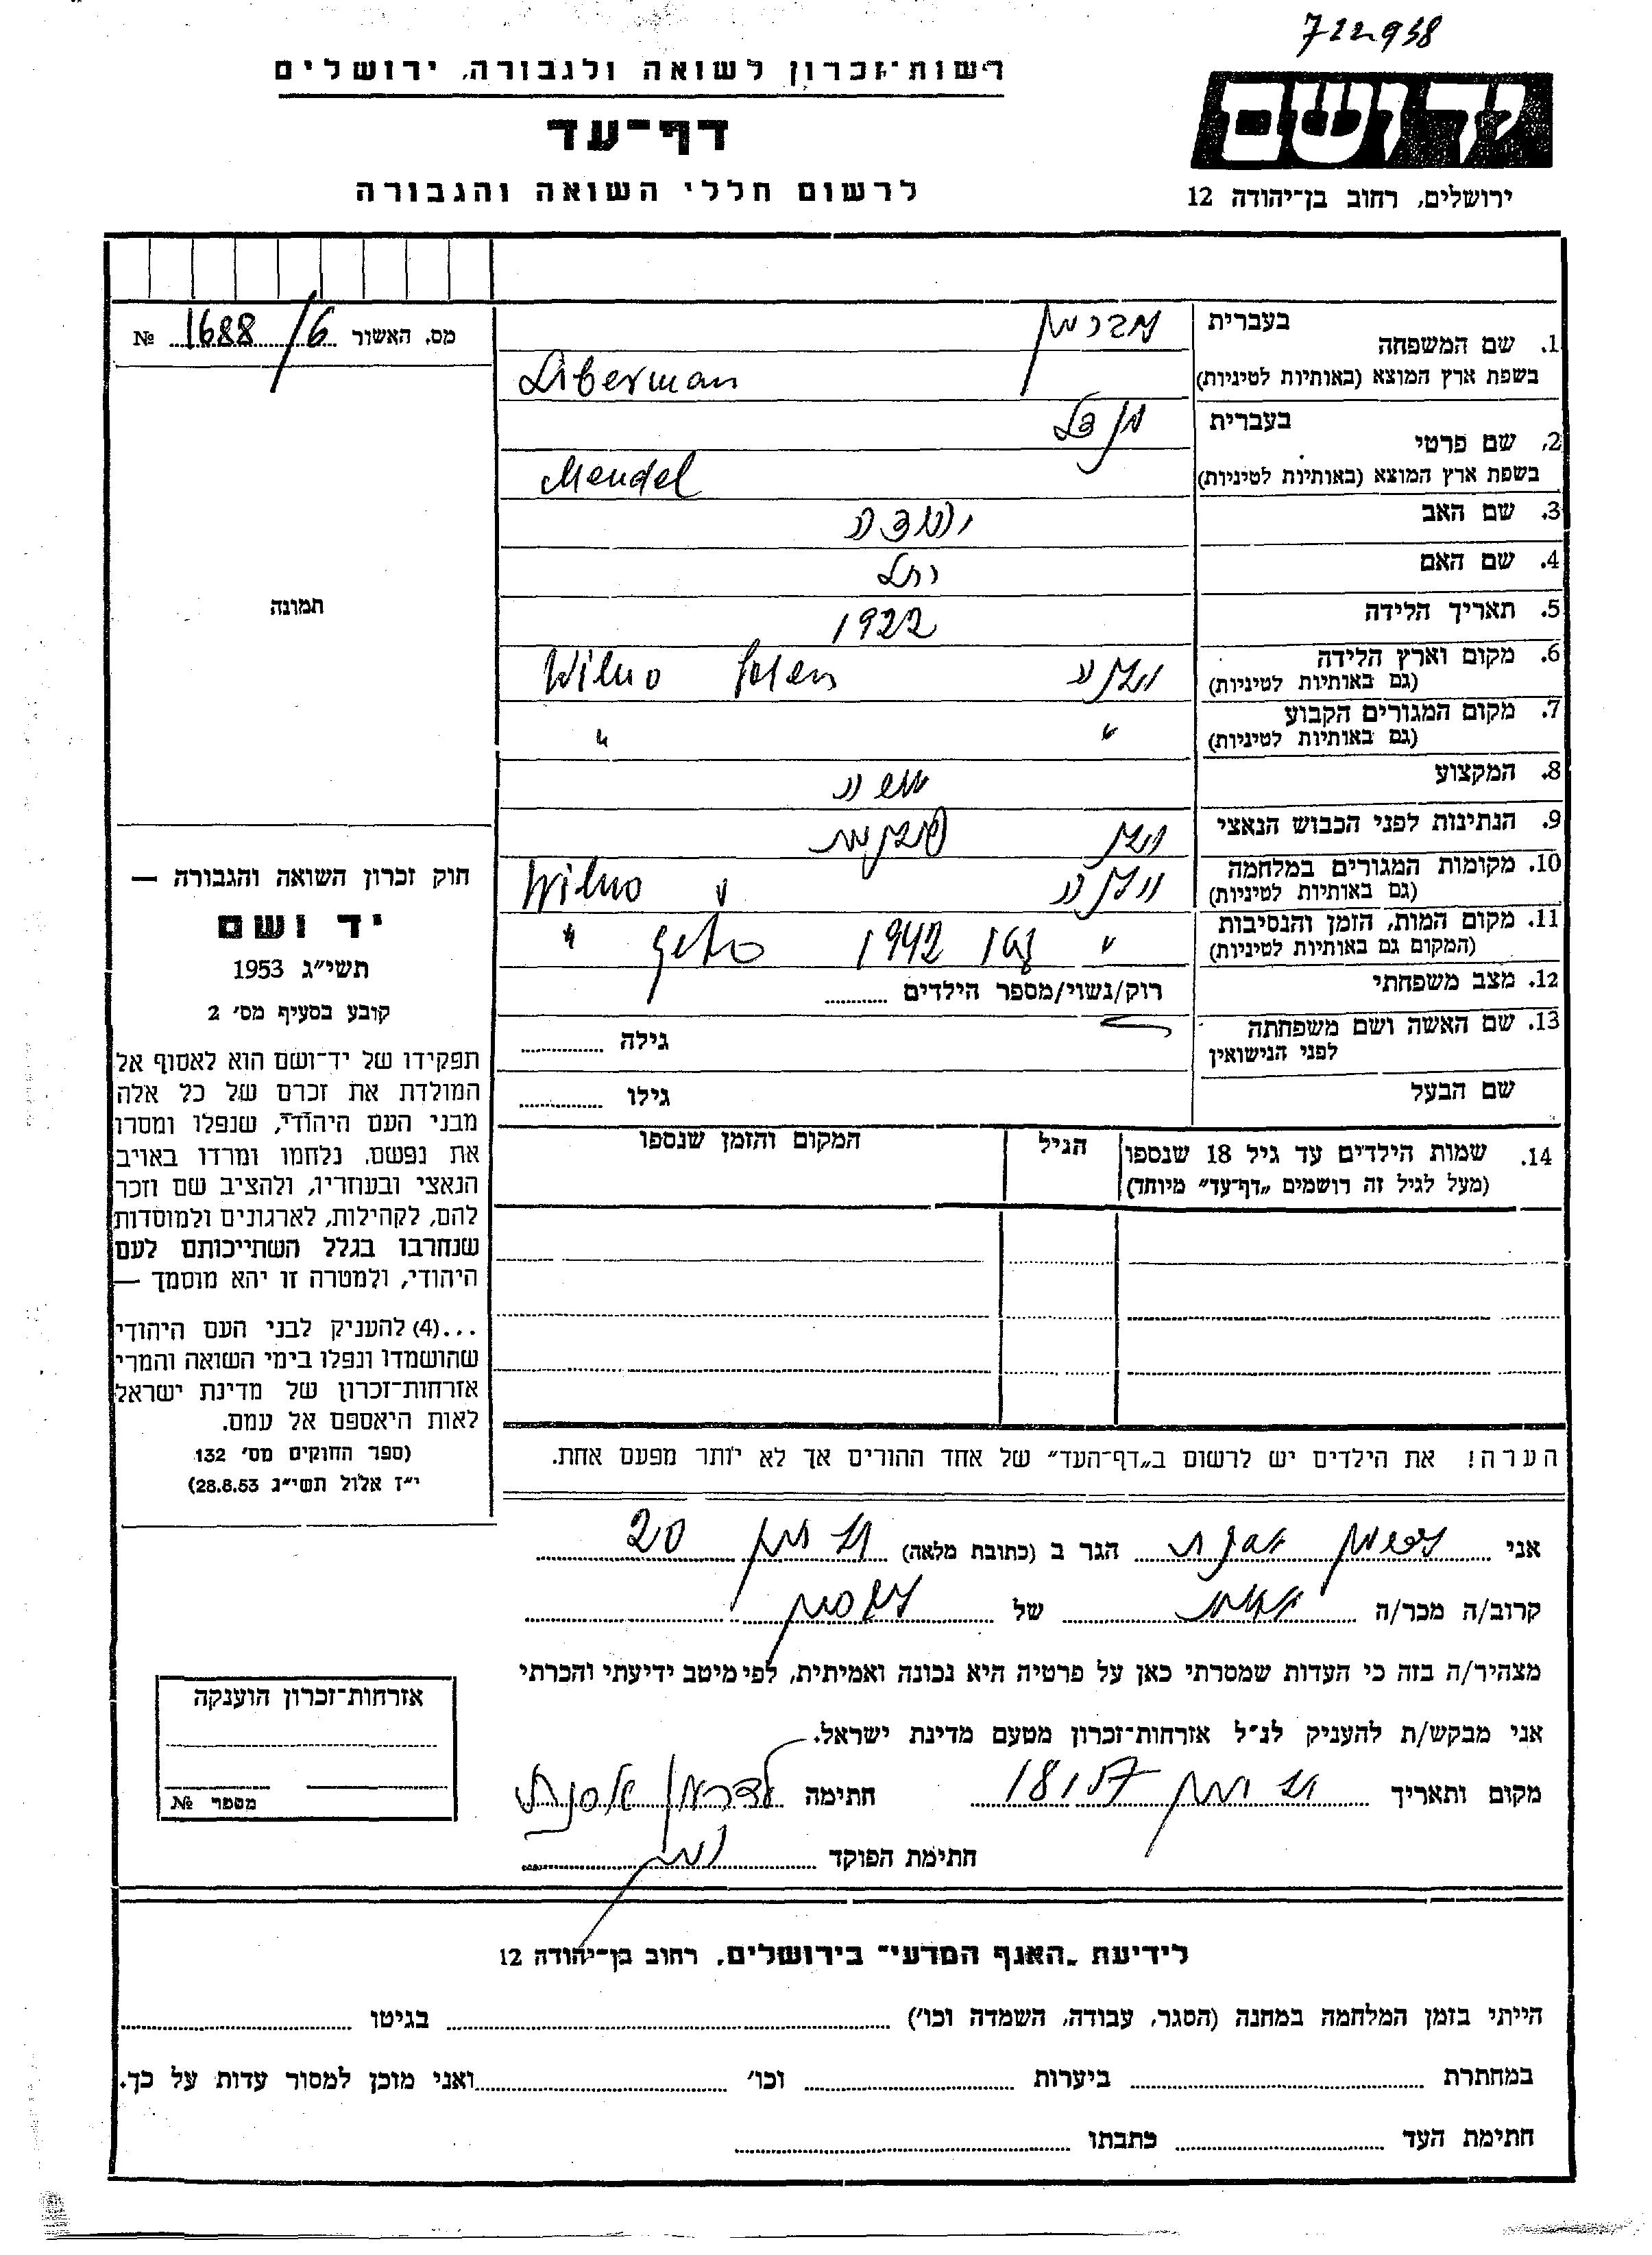 722938
רשות־זכרון לשואה ולגבורה, ירושלים
יד ושם
דף־עד
לרשום חללי השואה והגבורה
ירושלים, רחוב בן־יהודה 12
מס. האשור 1688/6 №
1. שם המשפחה
בעברית ליברמן
בשפת ארץ המוצא (באותיות לטיניות) Liberman
2. שם פרטי
בעברית מנדל
בשפת ארץ המוצא (באותיות לטיניות) Mendel
3. שם האב יהודה
4. שם האם רחל
5. תאריך הלידה 1922
6. מקום וארץ הלידה וילנה Wilno Polen
(גם באותיות לטיניות)
7. מקום המגורים הקבוע " "
(גם באותיות לטיניות)
8. המקצוע
9. הנתינות לפני הכבוש הנאצי
10. מקומות המגורים במלחמה וילנה Wilno
(גם באותיות לטיניות)
11. מקום המות, הזמן והנסיבות " 1942 geto "
(המקום גם באותיות לטיניות)
12. מצב משפחתי רוק/נשוי/מספר הילדים
13. שם האשה ושם משפחתה גילה
לפני הנישואין
שם הבעל גילו
14. שמות הילדים עד גיל 18 שנספו הגיל המקום והזמן שנספו
(מעל לגיל זה רושמים „דף־עד” מיוחד)
תמונה
חוק זכרון השואה והגבורה —
יד ושם
תשי״ג 1953
קובע בסעיף מס׳ 2
תפקידו של יד־ושם הוא לאסוף אל
המולדת את זכרם של כל אלה
מבני העם היהודי, שנפלו ומסרו
את נפשם, נלחמו ומרדו באויב
הנאצי ובעוזריו, ולהציב שם וזכר
להם, לקהילות, לארגונים ולמוסדות
שנחרבו בגלל השתייכותם לעם
היהודי, ולמטרה זו יהא מוסמך —
...(4) להעניק לבני העם היהודי
שהושמדו ונפלו בימי השואה והמרי
אזרחות־זכרון של מדינת ישראל
לאות היאספם אל עמם.
(ספר החוקים מס׳ 132
י״ז אלול תשי״ג 28.8.53)
הערה! את הילדים יש לרשום ב„דף־העד” של אחד ההורים אך לא יותר מפעם אחת.
אני הגר ב (כתובת מלאה) 20
קרוב/ה מכר/ה של
מצהיר/ה בזה כי העדות שמסרתי כאן על פרטיה היא נכונה ואמיתית, לפי מיטב ידיעתי והכרתי
אני מבקש/ת להעניק לנ״ל אזרחות־זכרון מטעם מדינת ישראל.
מקום ותאריך חתימה
חתימת הפוקד
אזרחות־זכרון הוענקה
מספר №
לידיעת „האגף המדעי” בירושלים, רחוב בן־יהודה 12
הייתי בזמן המלחמה במחנה (הסגר, עבודה, השמדה וכו׳) בגיטו
במחתרת ביערות וכו׳ ואני מוכן למסור עדות על כך.
חתימת העד כתבתו